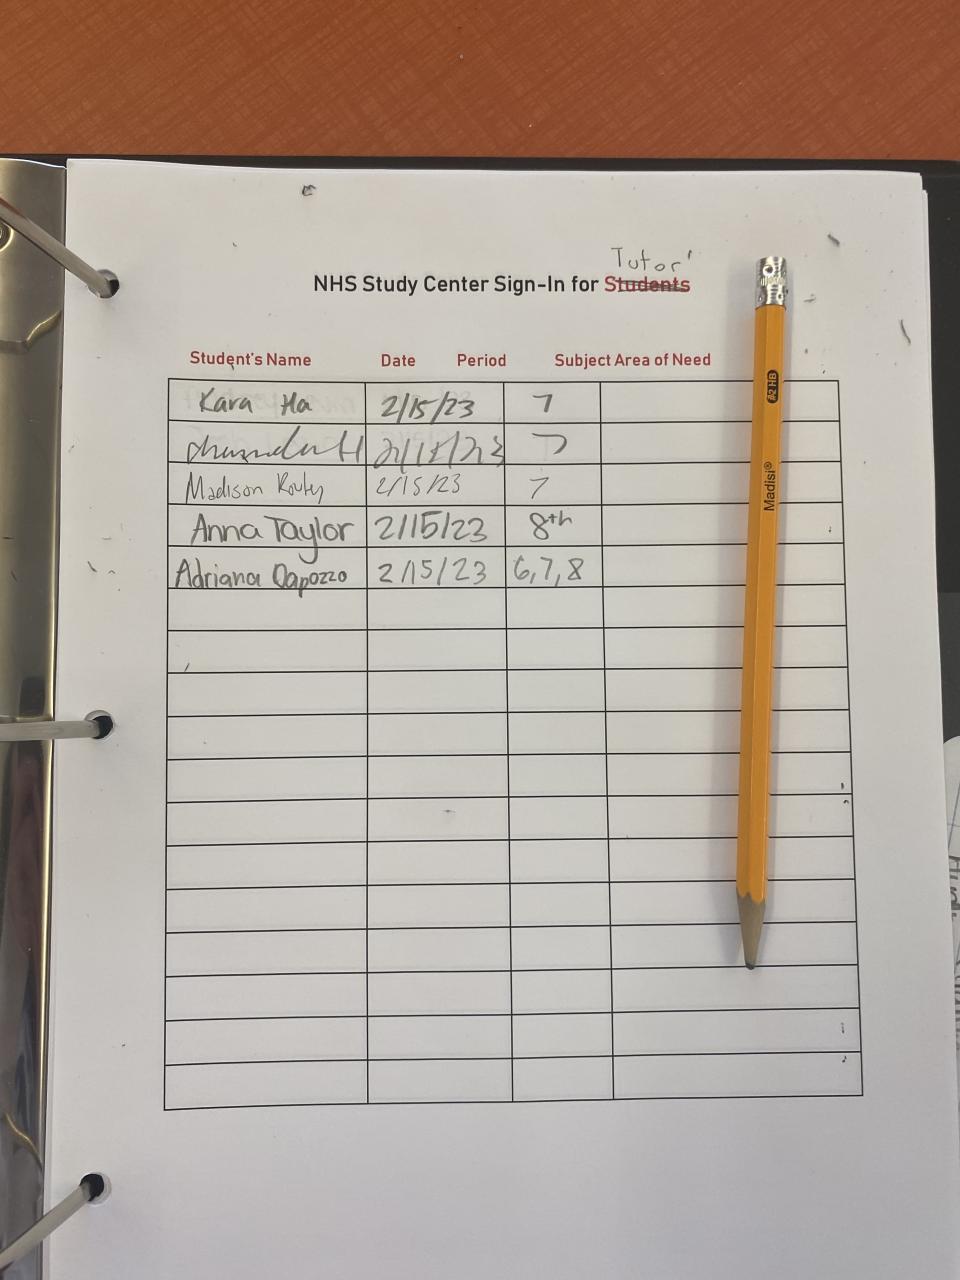 Tutor'
NHS Study Center Sign-In for Students
Student's Name Date Period Subject Area of Need
Kara Ha 2/15/23 7
2/15/23 7
Madison 2/15/23 7
Anna Taylor 2/15/23 8th
Adriana Dapozzo 2/15/23 6,7,8
#2 HB
Madisi®